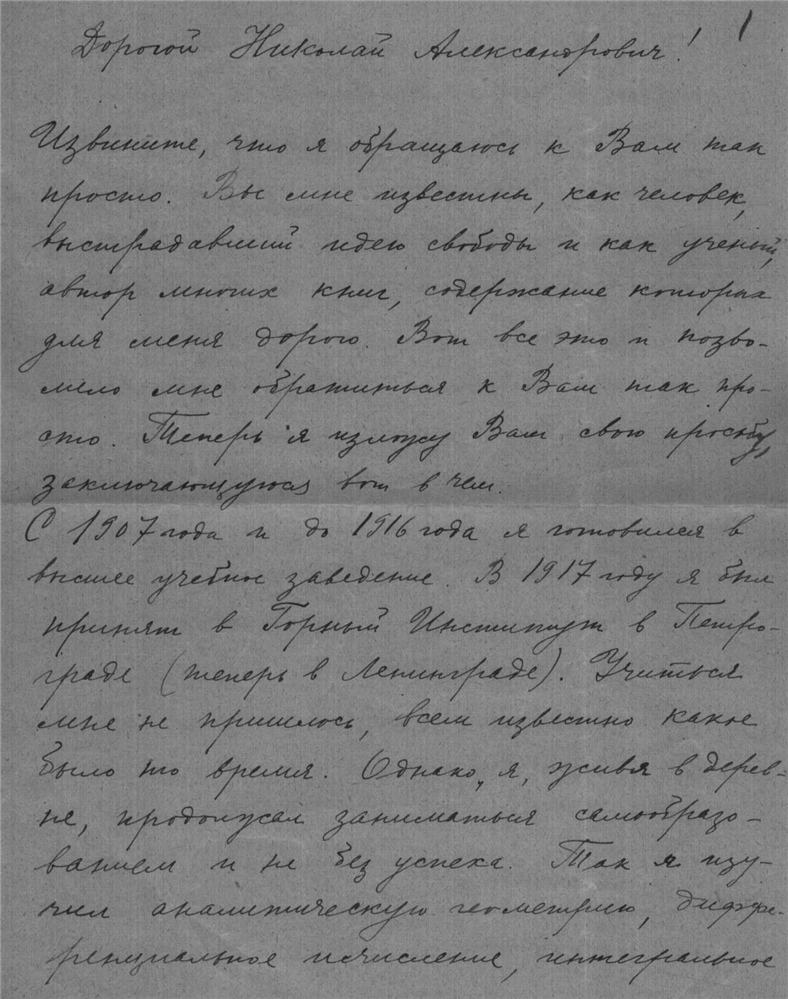 1
Дорогой Николай Александрович!
Извините, что я обращаюсь к Вам так
просто. Вы мне известны, как человек,
выстрадавший идею свободы и как ученый,
автор многих книг, содержание которых
для меня дорого. Вот все это и позво-
лило мне обратиться к Вам так про-
сто. Теперь я изложу Вам свою просьбу,
заключающуюся вот в чем.
С 1907 года и до 1916 года я готовился в
высшее учебное заведение. В 1917 году я был
принят в Горный Институт в Петро-
граде (теперь в Ленинграде). Учиться
мне не пришлось, всем известно какое
было то время. Однако, я, живя в дерев-
не, продолжал заниматься самообразо-
ванием и не без успеха. Так я изу-
чил аналитическую геометрию, диффе-
ренциальное исчисление, интегральное